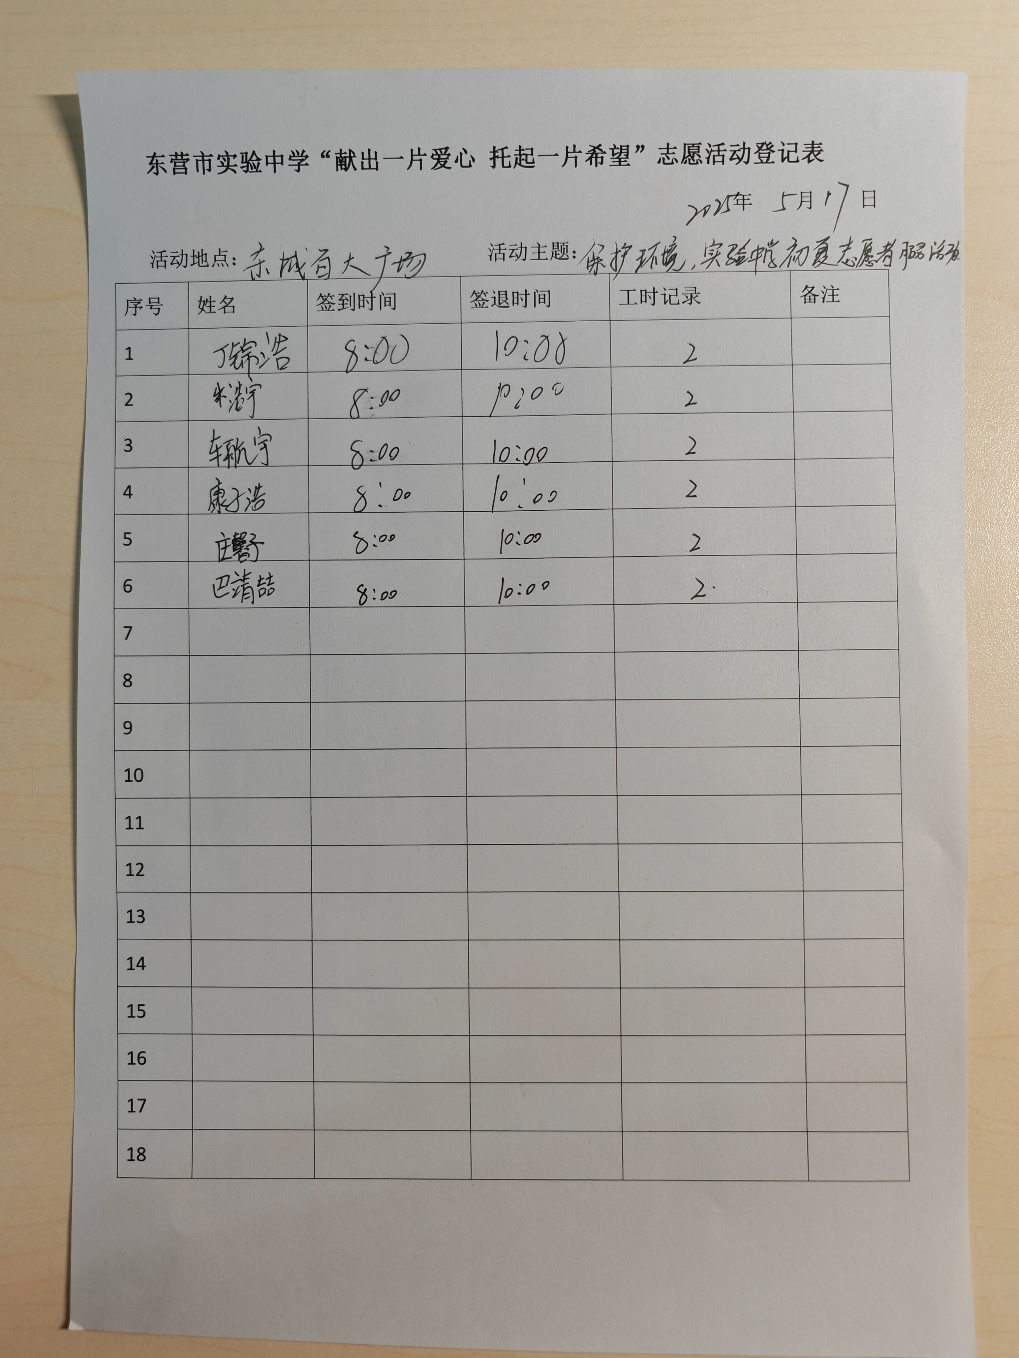 东营市实验中学“献出一片爱心 托起一片希望”志愿活动登记表
2025年 5月17日
活动地点：东城百大广场 活动主题：保护环境，实验中学初夏志愿者服务活动
序号 姓名 签到时间 签退时间 工时记录 备注
1 丁锦浩 8:00 10:00 2
2 宋浩宇 8:00 10:00 2
3 车航宇 8:00 10:00 2
4 康子浩 8:00 10:00 2
5 庄馨予 8:00 10:00 2
6 巴靖喆 8:00 10:00 2
7
8
9
10
11
12
13
14
15
16
17
18